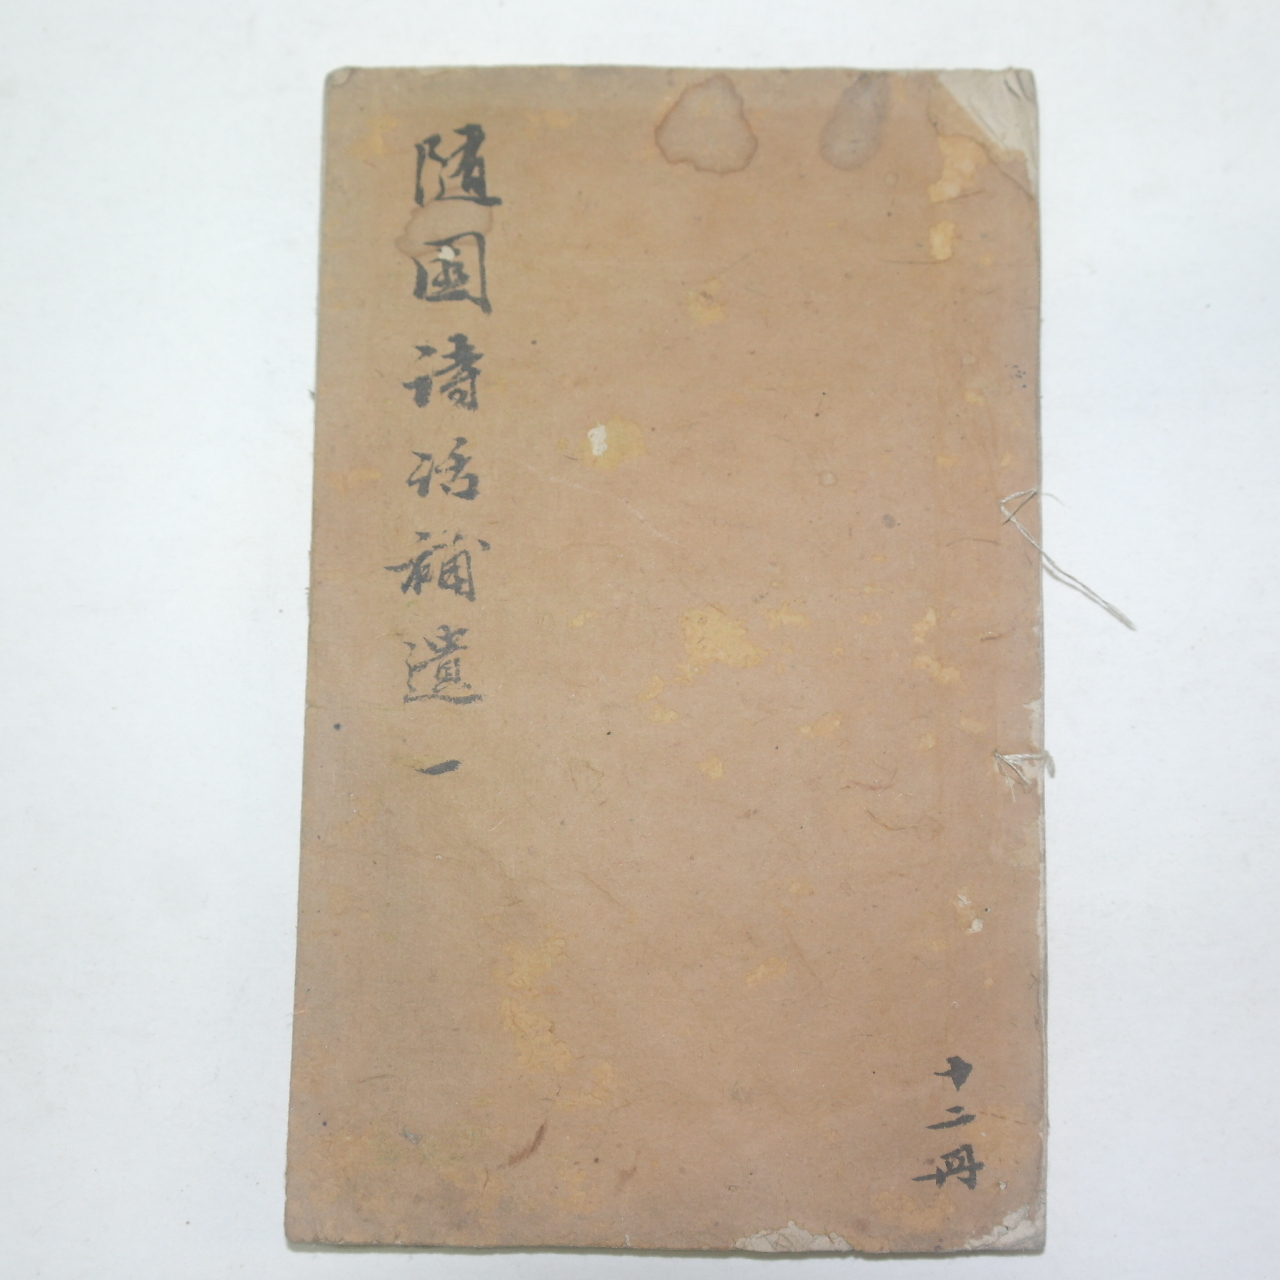 隨園詩話補遺 一
十二冊